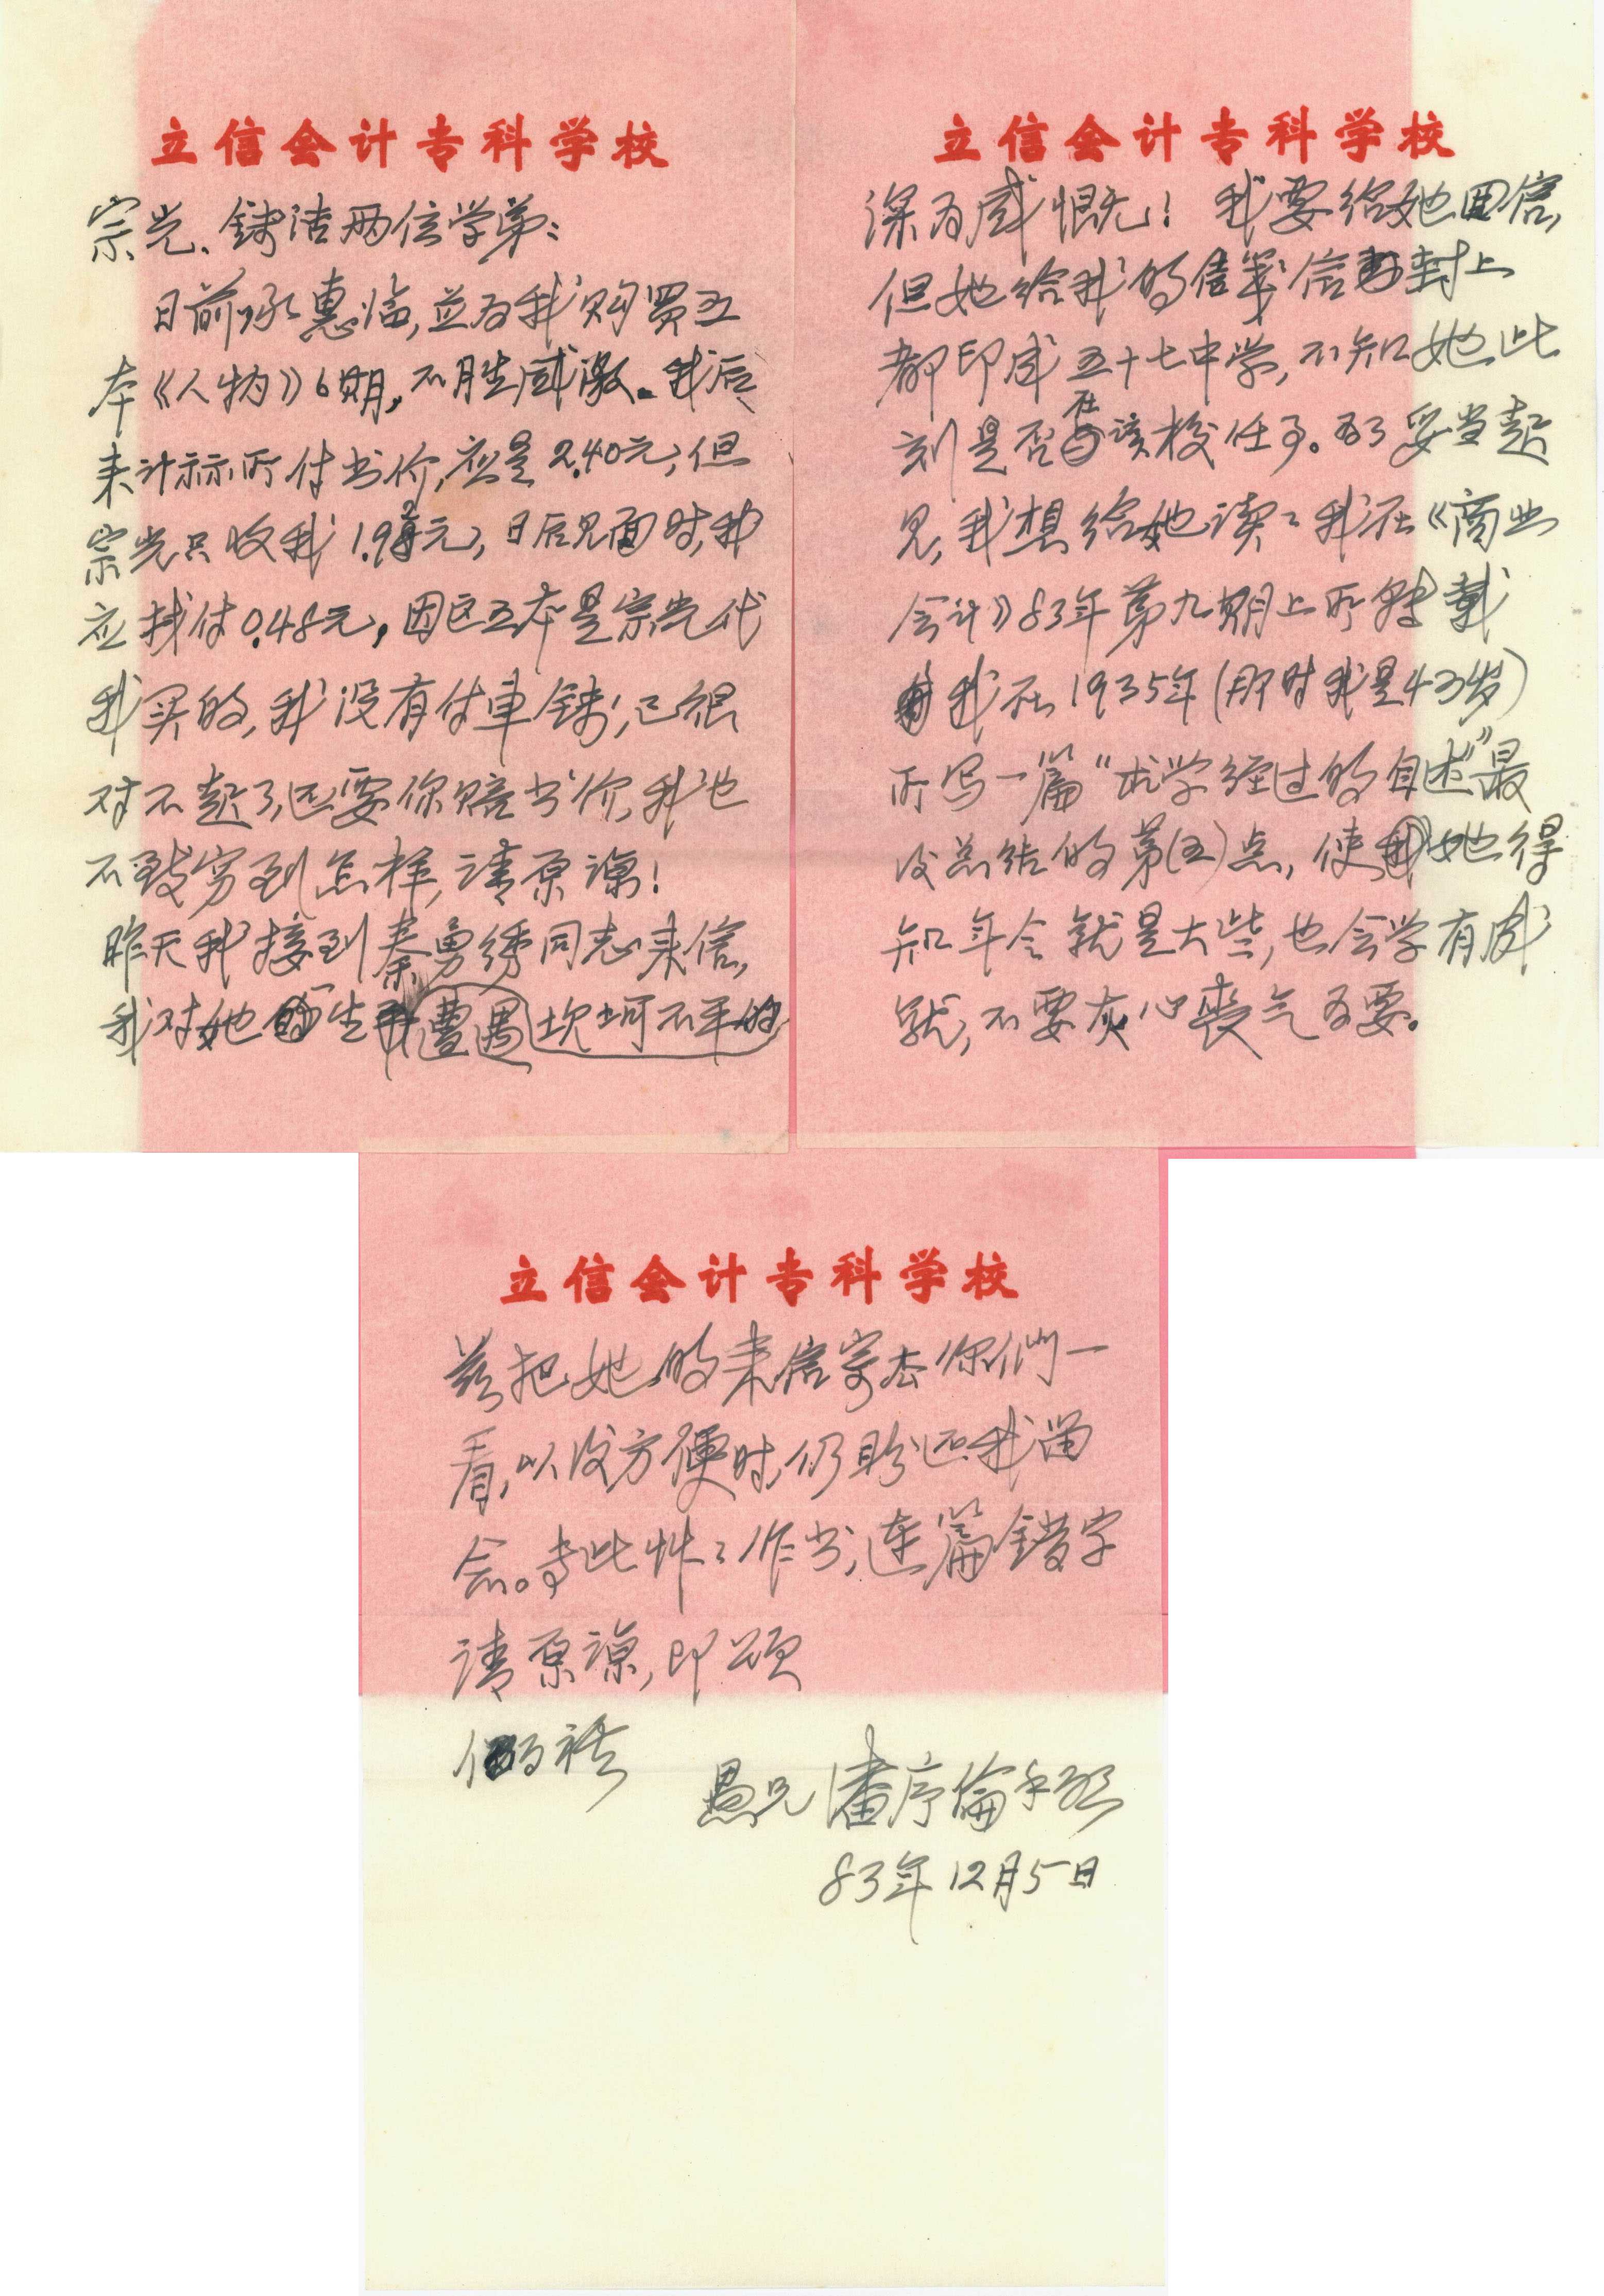 立信会计专科学校
宗光、钱洁两位学弟：
日前承惠临，並为我购买五
本《人物》6期，不胜感激。我后
来计标所付书价，应是2.40元，但
宗光只收我1.92元，日后见面时，我
应找付0.48元，因这五本是宗光代
我买的，我没有付车钱，已很
对不起了，还要你赔书价，我也
不致穷到怎样，请原谅！
昨天我接到秦勇绣同志来信，
我对她的生平遭遇坎坷不平的
立信会计专科学校
深为感慨！我要给她回信，
但她给我的信笺信封上
都印成五十七中学，不知她此
刻是否在该校任事。为了妥当起
见，我想给她读读我在《商业
会计》83年第九期上所转载
我在1935年（那时我是43岁）
所写一篇“求学经过的自述”最
后总结的第（五）点，使她得
知年令就是大些，也会学有成
就，不要灰心丧气为要。
立信会计专科学校
兹把她的来信寄去你们一
看，以后方便时，仍盼还我留
念。专此草草作书，连篇错字
请原谅，即颂
俪祺
愚兄潘序倫手启
83年12月5日